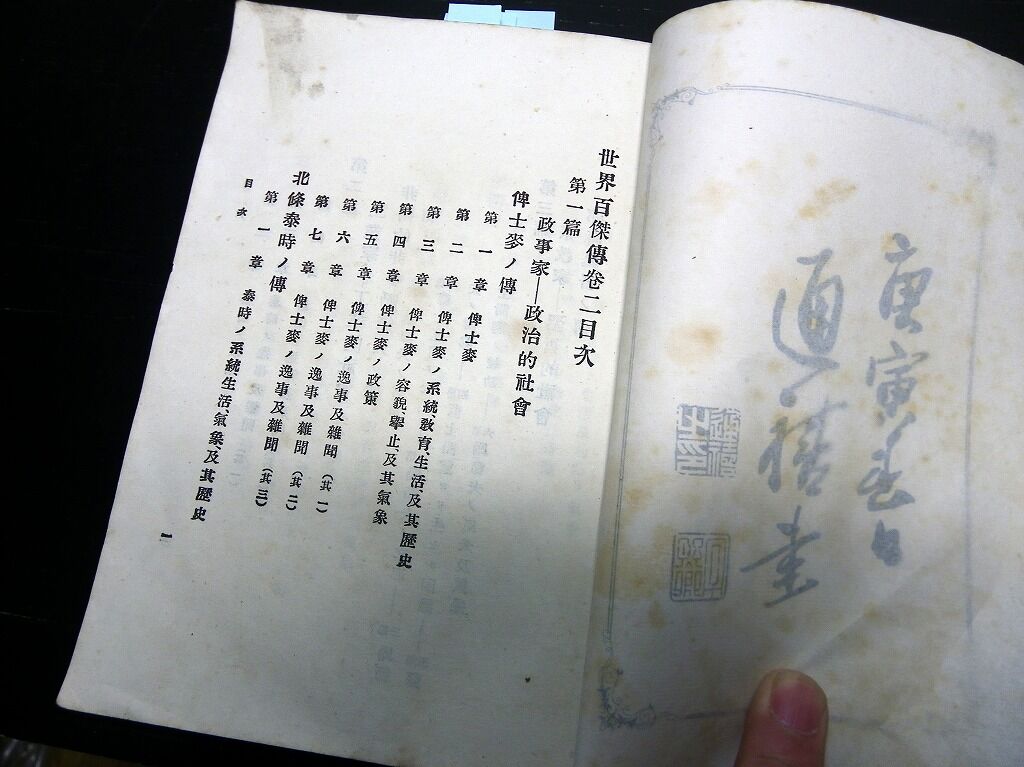 庚寅春日
通禧書
世界百傑傳卷二目次
第一篇 政事家──政治的社會
俾士麥ノ傳
第一章 俾士麥
第二章 俾士麥ノ系統、敎育、生活、及其歷史
第三章 俾士麥ノ容貌、擧止、及其氣象
第四章 俾士麥ノ政策
第五章 俾士麥ノ逸事及雜聞(其一)
第六章 俾士麥ノ逸事及雜聞(其二)
第七章 俾士麥ノ逸事及雜聞(其三)
北條泰時ノ傳
第一章 泰時ノ系統、生活、氣象、及其歷史
目次 一